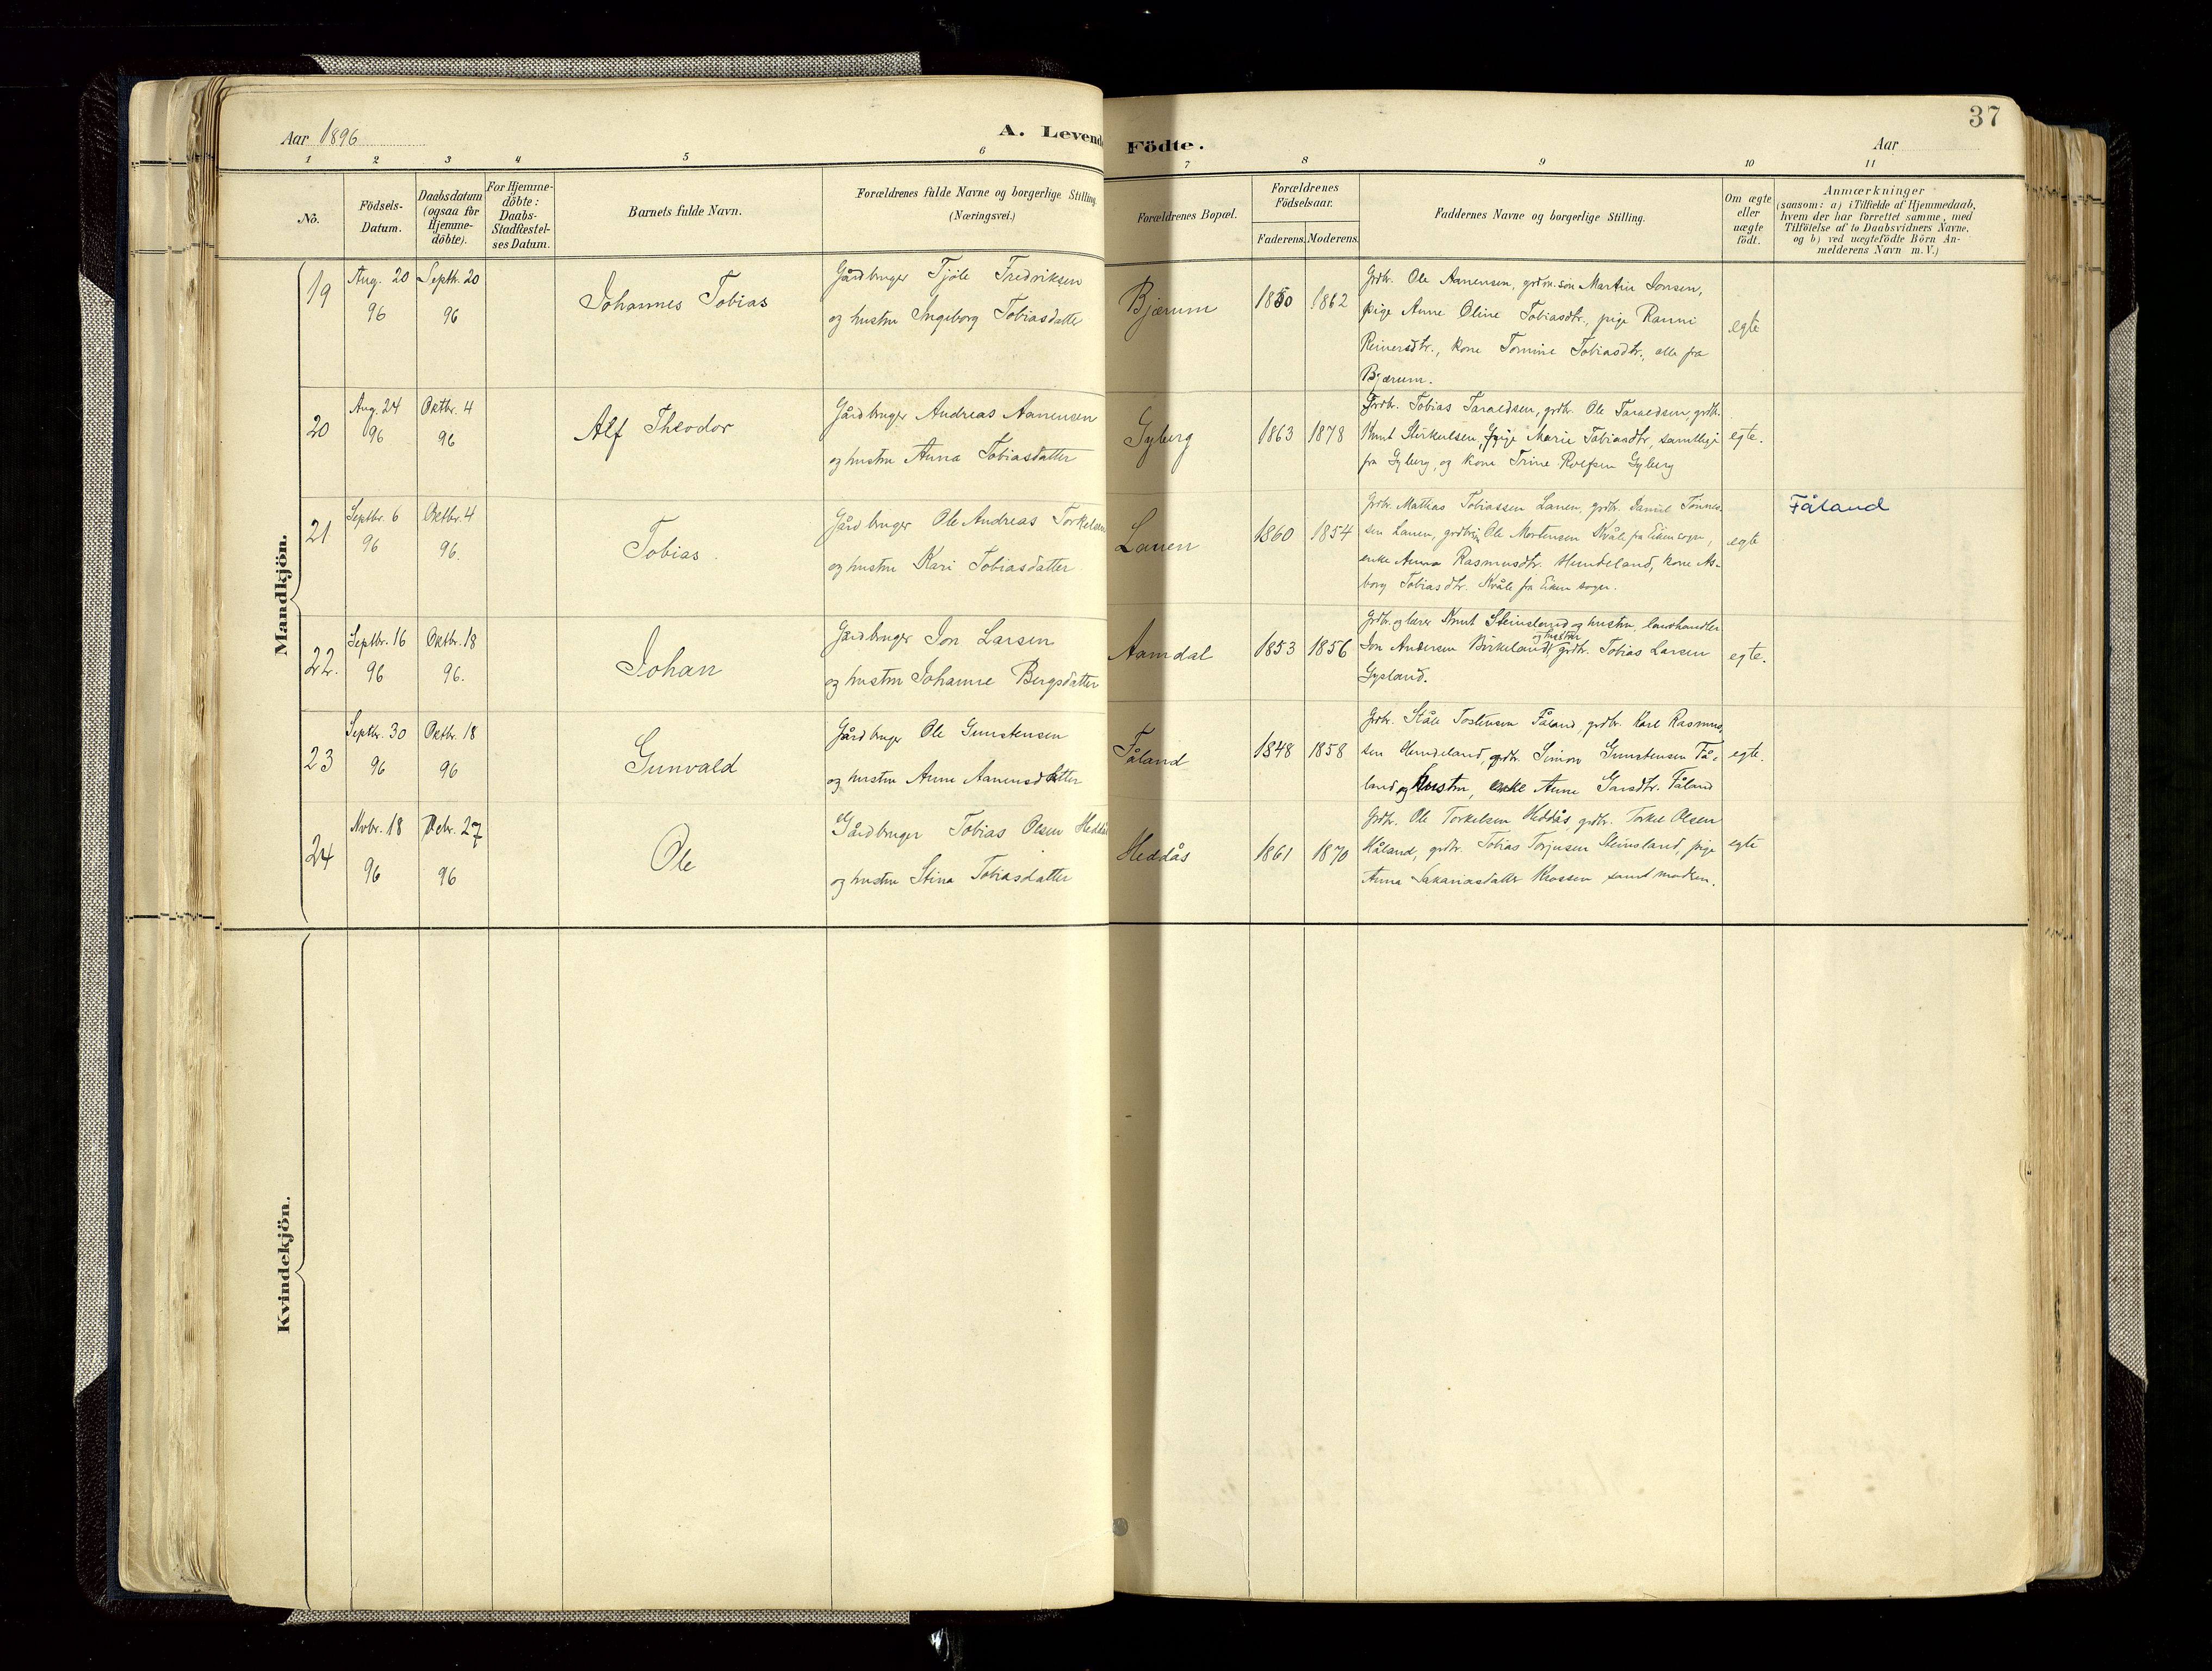 37
Aar 1896
A. Levende Födte.
Aar
1 2 3 4 5 6 7 8 9 10 11
No.
Födsels-
Datum.
Daabsdatum
(ogsaa for
Hjemme-
döbte).
For Hjemme-
döbte:
Daabs-
Stadfæstel-
ses Datum.
Barnets fulde Navn.
Forældrenes fulde Navne og borgerlige Stilling
(Næringsvei.)
Forældrenes Bopæl.
Forældrenes
Födselsaar.
Faderens. Moderens.
Faddernes Navne og borgerlige Stilling.
Om ægte
eller
uægte
födt.
Anmærkninger
(saasom: a) i Tilfælde af Hjemmedaab,
hvem der har forrettet samme, med
Tilföielse af to Daabsvidners Navne.
og b) ved uægtefödte Börn An-
melderens Navn m.V.)
Mandkjön.
19
Aug. 20
96
Septbr. 20
96
Johannes Tobias
Gårdbruger Tjöle Fredriksen
og hustru Ingeborg Tobiasdatter
Bjærum
1850 1862
Grdbr. Ole Aanensen, grdm. sön Martin Jonsen,
pige Anne Oline Tobiasdtr., pige Ranni
Reinersdtr., kone Tomine Tobiasdtr., alle fra
Bjærum.
egte
20
Aug. 24
96
Oktbr. 4
96
Alf Theodor
Gårdbruger Andreas Aanensen
og hustru Anna Tobiasdatter
Gyberg
1863 1878
Grdbr. Tobias Taraldsen, grdbr. Ole Taraldsen, grdbr.
Knut Sirkulsen, pige Marie Tobiasdtr, samtlige
fra Gyberg, og kone Trine Rolfsen Gyberg
egte.
21
Septbr. 6
96
Oktbr. 4
96.
Tobias
Gårdbruger Ole Andreas Torkelsen
og hustru Kari Tobiasdatter
Lauen
1860 1854
Grdbr. Mathias Tobiassen Lauen, grdbr. Daniel Tönnes-
sen Lauen, grdbr. Ole Mortensen Kvåle fra Eiken sogn,
enke Anna Rasmusdtr. Hundeland, kone As-
borg Tobiasdtr. Kvåle fra Eiken sogn.
egte
Fåland
22.
Septbr. 16
96
Oktbr. 18
96.
Johan
Gårdbruger Jon Larsen
og hustru Johanne Bergsdatter
Aamdal
1853 1856
Grdbr. og lærer Knut Steinsland og hustru, landhandler
Jon Andersen Birkeland og hustru, grdbr. Tobias Larsen
Gysland.
egte.
23
Septbr. 30
96
Oktbr. 18
96
Gunvald
Gårdbruger Ole Gunstensen
og hustru Anne Aanensdatter
Fåland
1848 1858
Grdbr. Ståle Tostensen Fåland, grdbr. Karl Rasmus-
sen Hundeland, grdbr. Simon Gunstensen Få-
land og hustru, enke Anne Gansdtr. Fåland
egte.
24
Novbr. 18
96
Decbr. 27
96
Ole
Gårdbruger Tobias Olsen Heddås
og hustru Stina Tobiasdatter
Heddås
1861 1870
Grdbr. Ole Torkelsen Heddås, grdbr. Torkel Olsen
Håland, grdbr. Tobias Torjusen Steinsland, pige
Anna Sakariasdatter Krossen samt modren.
egte
Kvindekjön.